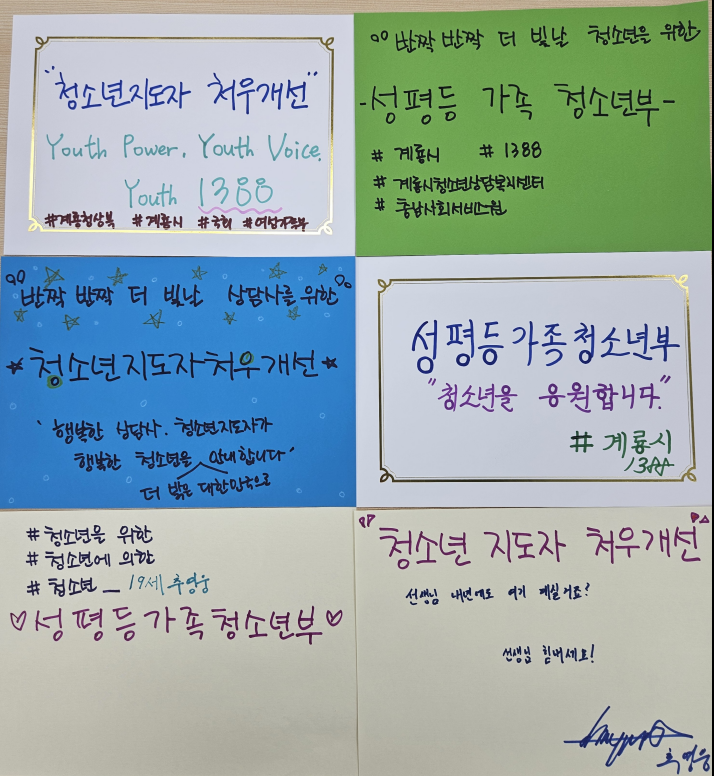 "청소년지도자 처우개선"
Youth Power, Youth Voice,
Youth 1388
#계룡청상복 #계룡시 #국회 #여성가족부
반짝 반짝 더 빛날 청소년을 위한
-성평등 가족 청소년부-
# 계룡시 # 1388
# 계룡시청소년상담복지센터
# 충남사회서비스원
반짝 반짝 더 빛날 상담사를 위한
청소년지도자처우개선
행복한 상담사. 청소년지도자가
행복한 청소년을 안내합니다
더 밝은 대한민국으로
성평등가족청소년부
"청소년을 응원합니다."
# 계룡시
1388
#청소년을 위한
#청소년에 의한
#청소년_ 19세 추영웅
♡성평등가족청소년부♡
"청소년 지도자 처우개선
선생님 내년에도 여기 계실거죠?
선생님 힘내세요!